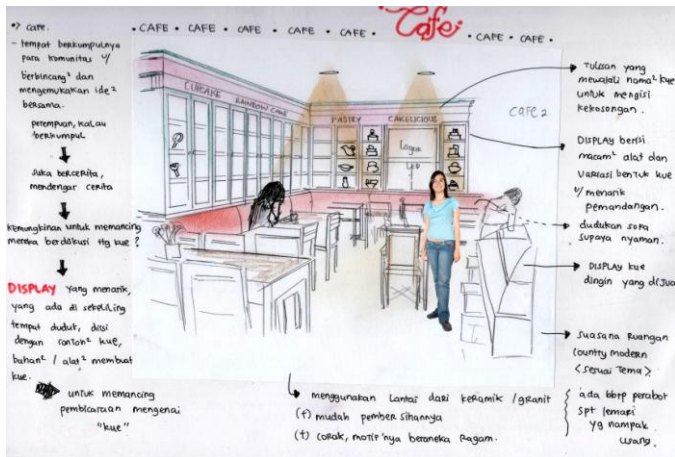 • CAFE • CAFE • CAFE • CAFE • CAFE •
Cafe
• CAFE • CAFE •
*) cafe.
- tempat berkumpulnya
para komunitas u/
berbincang² dan
mengemukakan ide²
bersama.
perempuan, kalau
berkumpul
suka bercerita,
mendengar cerita
kemungkinan untuk memancing
mereka berdiskusi ttg kue ?
DISPLAY yang menarik,
yang ada di sekeliling
tempat duduk, diisi
dengan contoh² kue,
bahan² / alat² membuat
kue.
untuk memancing
pembicaraan mengenai
"kue"
CUPCAKE
RAINBOW CAKE
PASTRY
CAKELICIOUS
Layar
LCD
CAFE 2
Tulisan yang
mewakili nama² kue
untuk mengisi
kekosongan.
DISPLAY berisi
macam² alat dan
variasi bentuk kue
u/ menarik
pemandangan.
dudukan sofa
supaya nyaman.
DISPLAY kue
dingin yang dijual
suasana Ruangan
Country modern
<sesuai Tema>
ada bbrp perabot
spt lemari
yg nampak
usang.
menggunakan Lantai dari keramik / granit
(+) mudah pembersihannya
(+) corak, motif'nya beraneka Ragam.